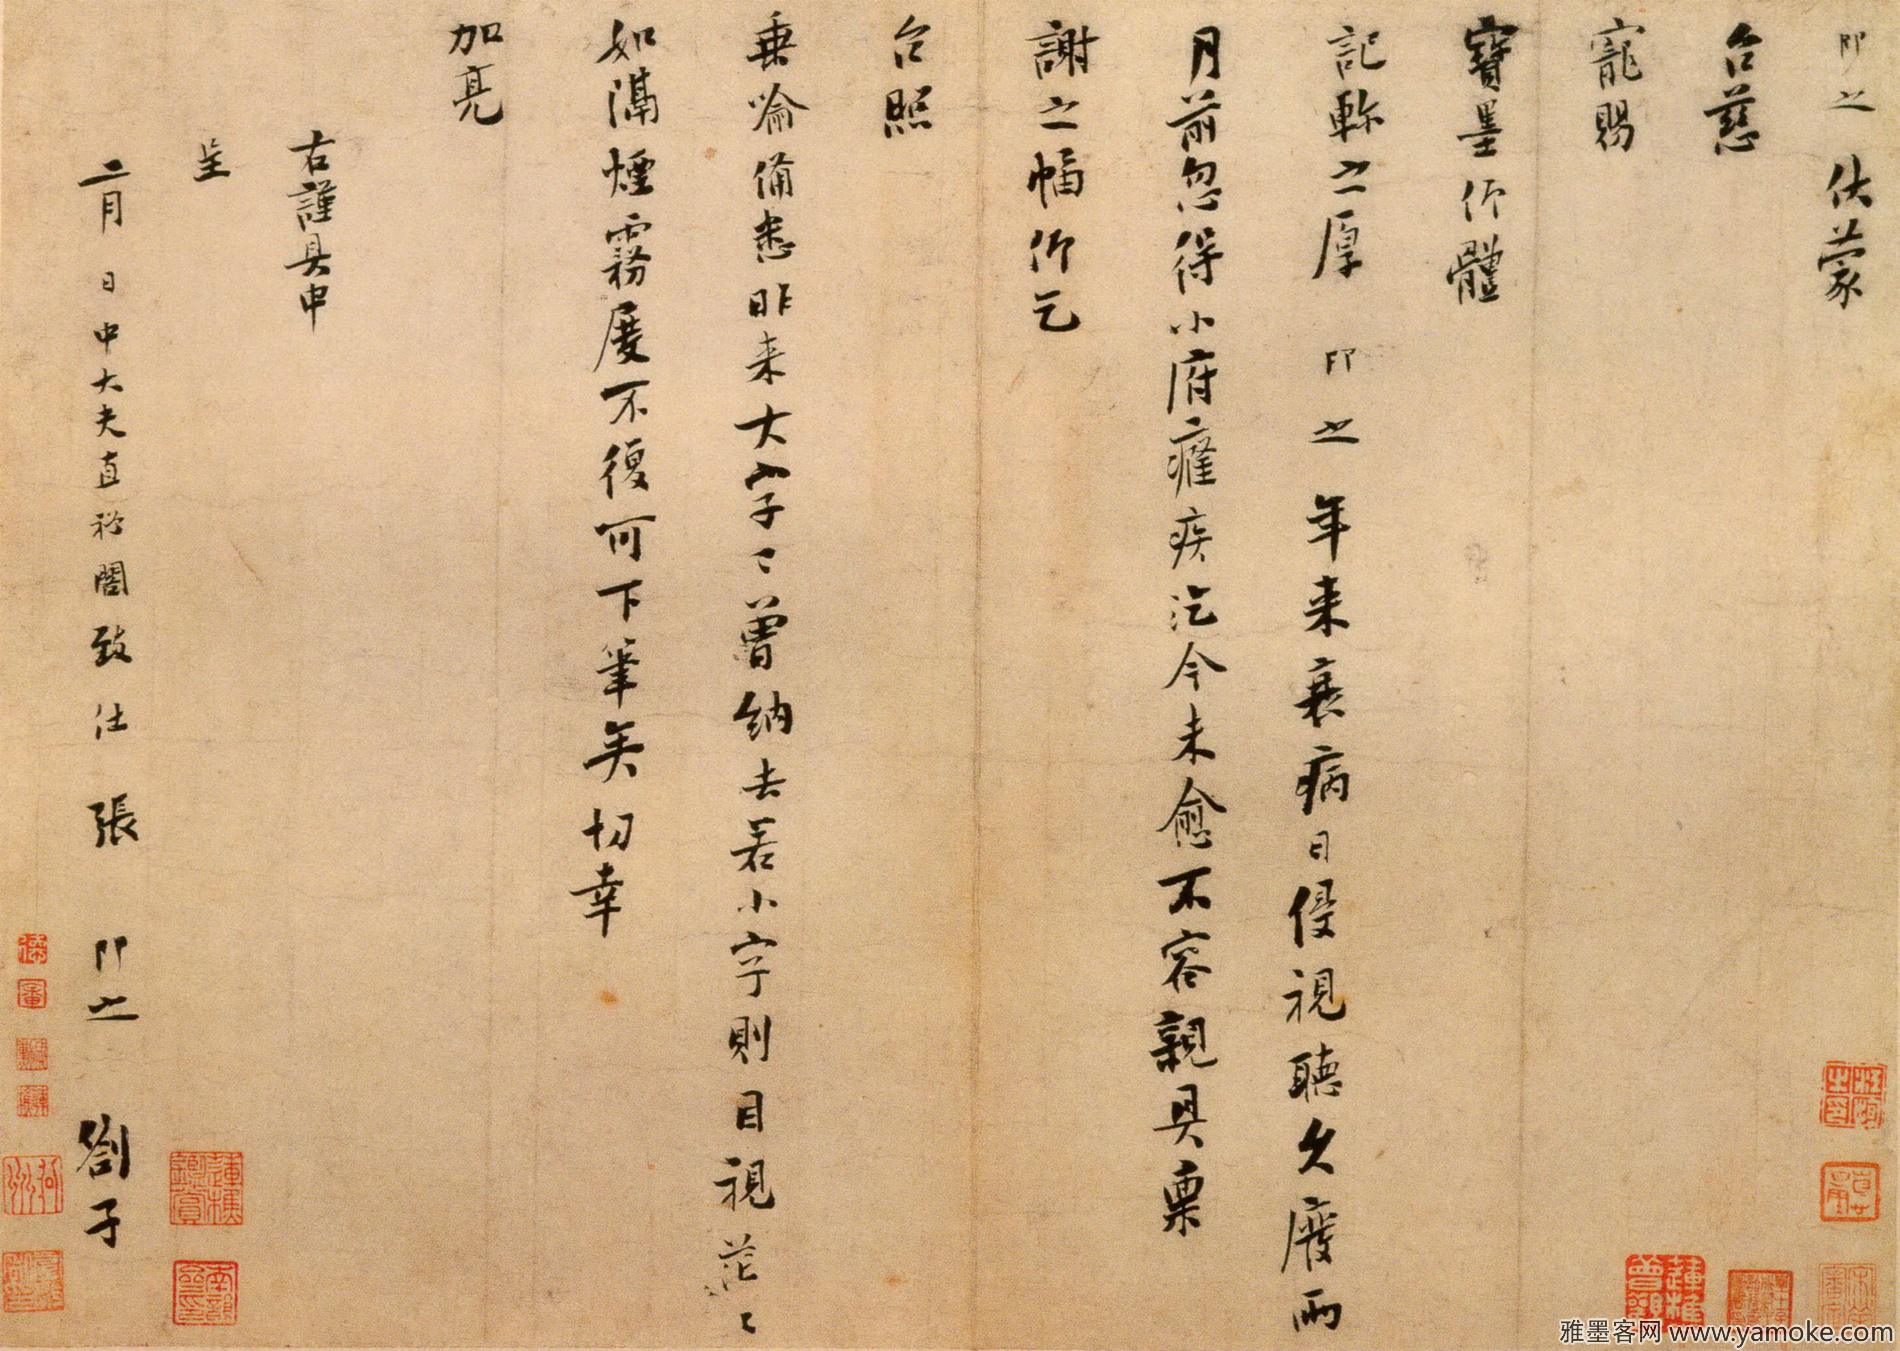 即之伏蒙
台慈
寵賜
寶墨仰體
記軫之厚即之年来衰病日侵視聽久廢两
月前忽得小府癰疾迄今未愈不容親具稟
謝之幅仰乞
台照
垂喻備悉昨来大字々曾納去若小字則目視茫々
如隔煙霧屡不復可下筆矣切幸
加亮
右謹具申
呈
二月 日中大夫直祕閣致仕張即之劄子
雅墨客网 www.yamoke.com